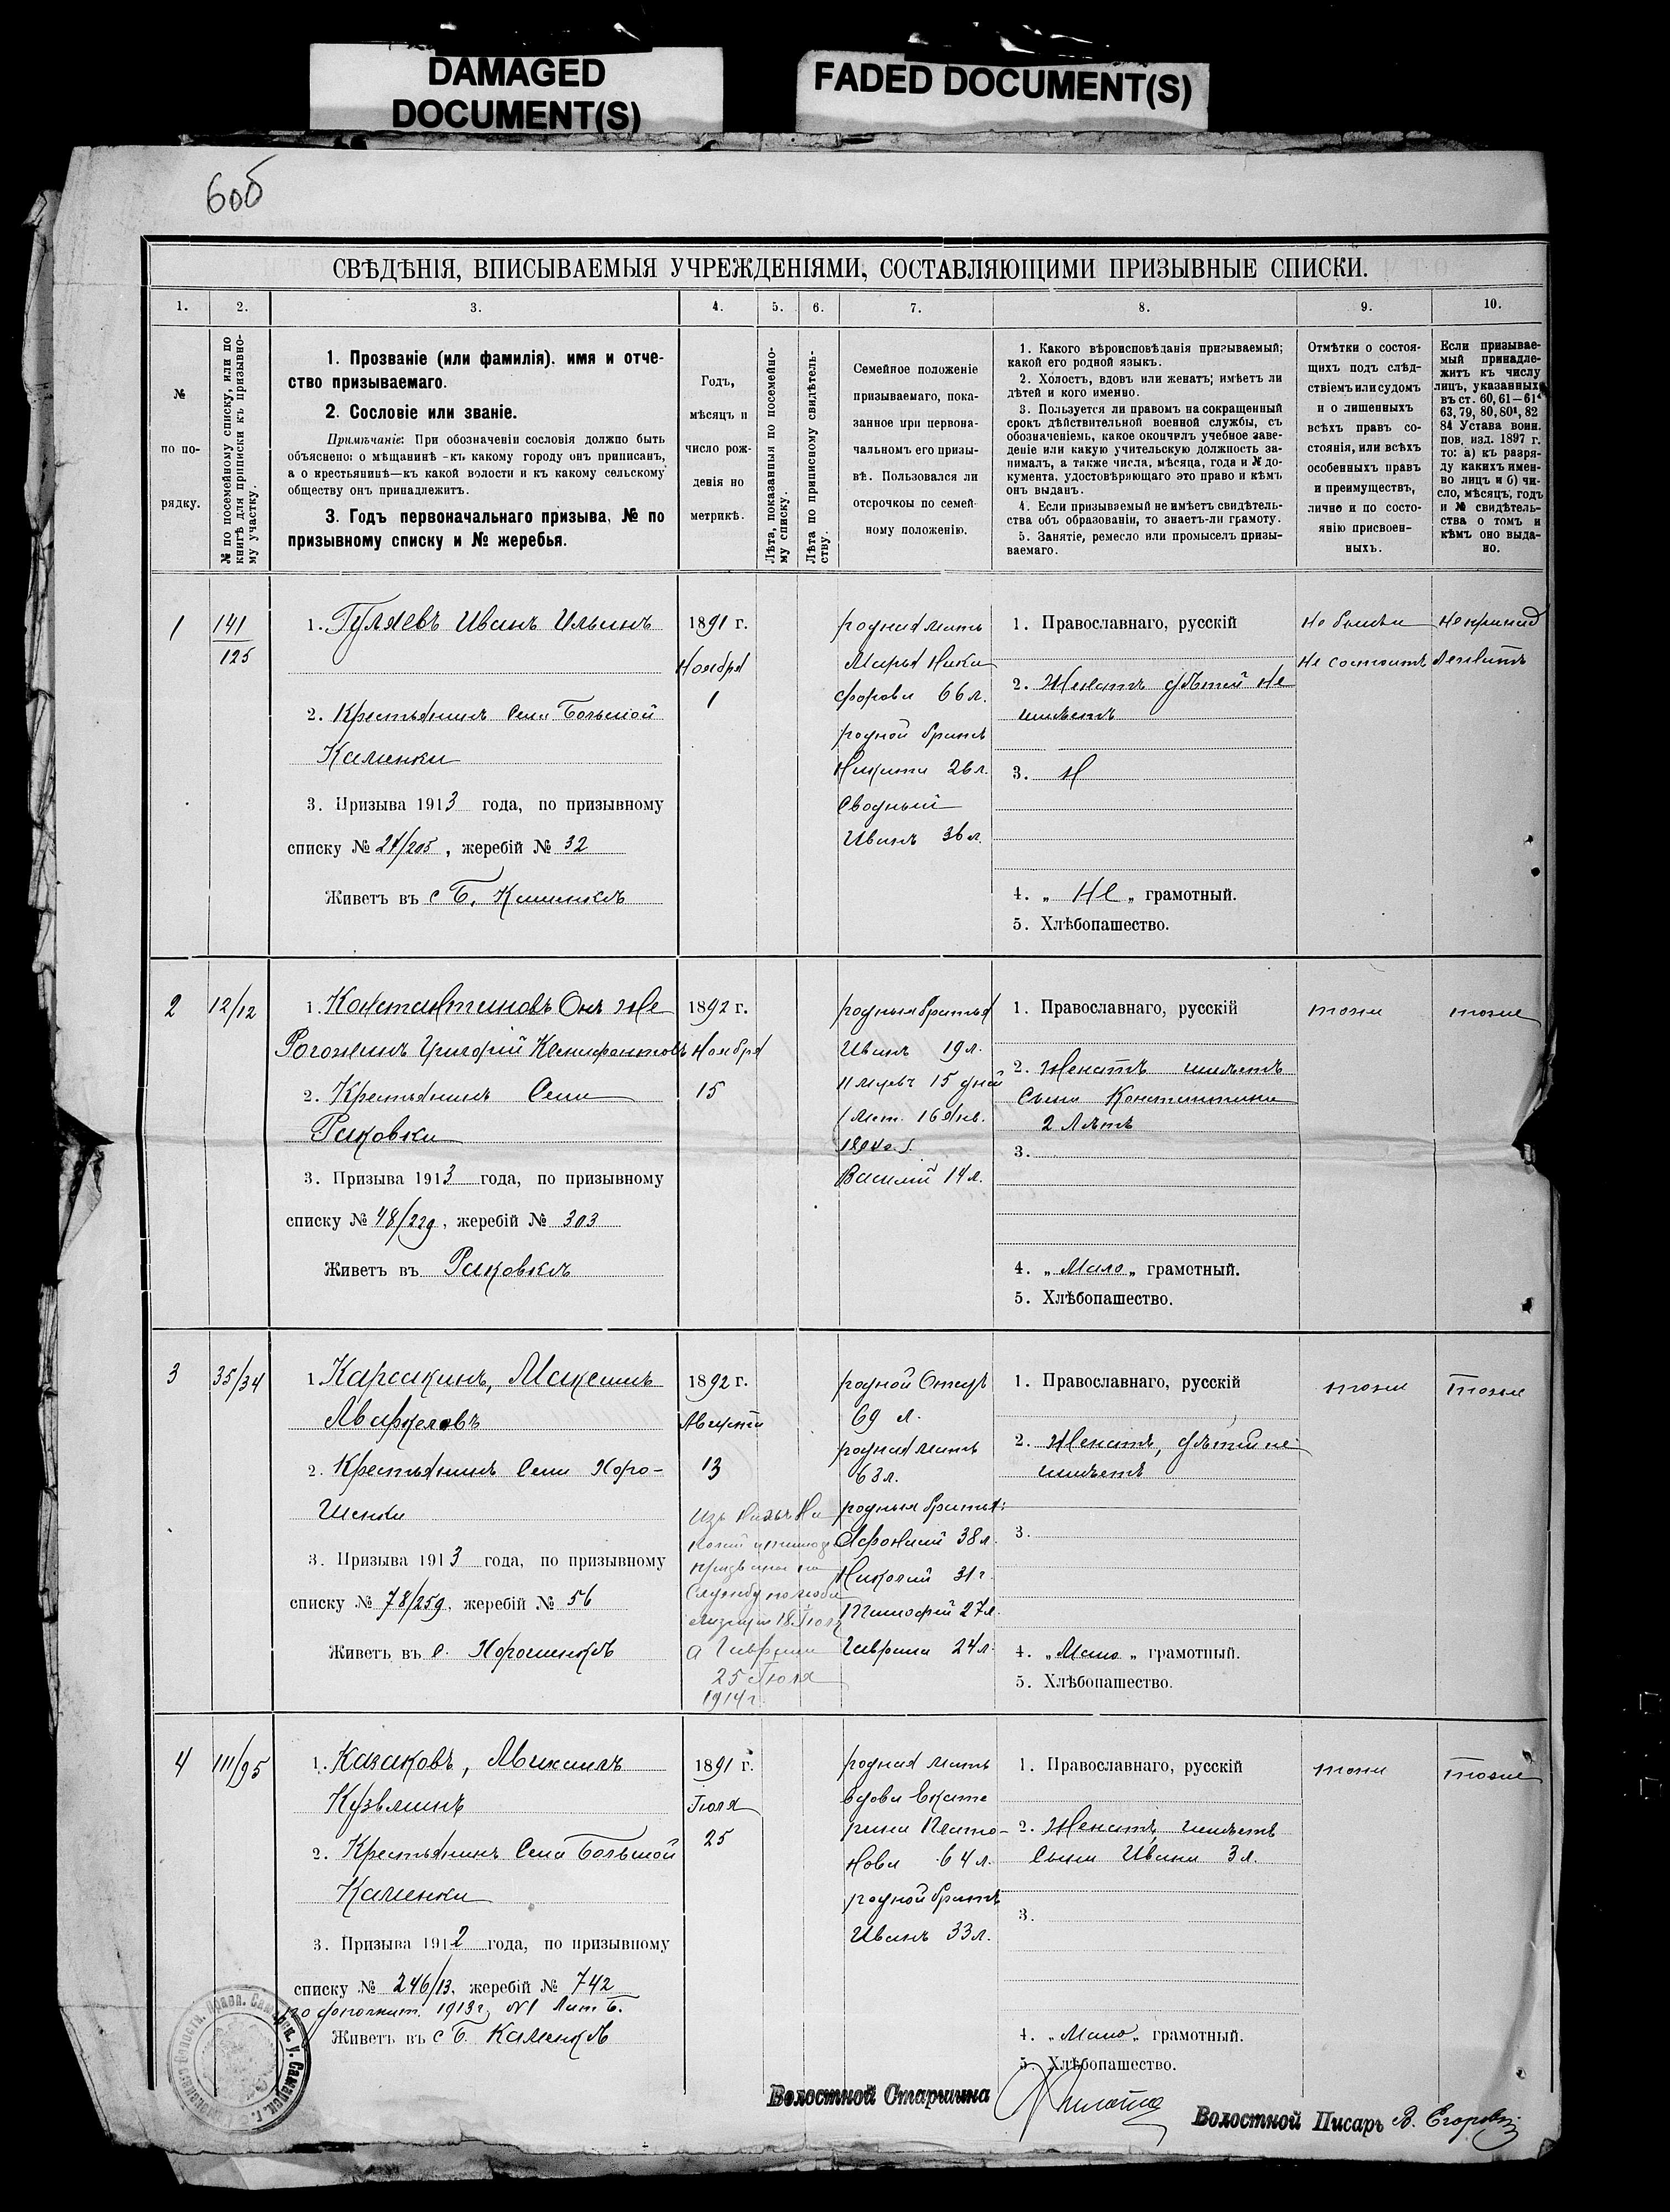 DAMAGED
DOCUMENT(S)
FADED DOCUMENT(S)
60б
СВѢДѢНІЯ, ВПИСЫВАЕМЫЯ УЧРЕЖДЕНІЯМИ, СОСТАВЛЯЮЩИМИ ПРИЗЫВНЫЕ СПИСКИ.
1.
2.
3.
4.
5.
6.
7.
8.
9.
10.
№
по по-
рядку.
№ по посемейному списку, или по
книгѣ для приписки къ призывно-
му участку.
1. Прозваніе (или фамилія). имя и отче-
ство призываемаго.
2. Сословіе или званіе.
Примѣчаніе: При обозначеніи сословія должно быть
объяснено: о мѣщанинѣ -къ какому городу онъ приписанъ,
а о крестьянинѣ—къ какой волости и къ какому сельскому
обществу онъ принадлежитъ.
3. Годъ первоначальнаго призыва, № по
призывному списку и № жеребья.
Годъ,
мѣсяцъ и
число рож-
денія по
метрикѣ.
Лѣта, показанныя по посемейно-
му списку.
Лѣта по приписному свидѣтель-
ству.
Семейное положеніе
призываемаго, пока-
занное при первона-
чальномъ его призы-
вѣ. Пользовался ли
отсрочкою по семей-
ному положенію.
1. Какого вѣроисповѣданія призываемый;
какой его родной языкъ.
2. Холостъ, вдовъ или женатъ; имѣетъ ли
дѣтей и кого именно.
3. Пользуется ли правомъ на сокращенный
срокъ дѣйствительной военной службы, съ
обозначеніемъ, какое окончилъ учебное заве-
деніе или какую учительскую должность за-
нималъ, а также числа, мѣсяца, года и № до-
кумента, удостовѣряющаго это право и кѣмъ
онъ выданъ.
4. Если призываемый не имѣетъ свидѣтель-
ства объ образованіи, то знаетъ-ли грамоту.
5. Занятіе, ремесло или промыселъ призы-
ваемаго.
Отмѣтки о состоя-
щихъ подъ слѣд-
ствіемъ или судомъ
и о лишенныхъ
всѣхъ правъ со-
стоянія, или всѣхъ
особенныхъ правъ
и преимуществъ,
лично и по состо-
янію присвоен-
ныхъ.
Если призывае-
мый принадле-
житъ къ числу
лицъ, указанныхъ
въ ст. 60, 61—61⁴
63, 79, 80, 80¹, 82
84 Устава воин.
пов. изд. 1897 г.
то: а) къ разря-
ду какихъ имен-
но лицъ и б) чи-
сло, мѣсяцъ, годъ
и № свидѣтель-
ства о томъ и
кѣмъ оно выда-
но.
1
141
125
1. Гуляевъ Иванъ Ильинъ
2. Крестьянинъ Села Большой
Каменки
3. Призыва 1913 года, по призывному
списку № 21/205, жеребій № 32
Живетъ въ с Б. Каменкѣ
1891 г.
Ноября
1
родная мать
Марья Ники
форова 66 л.
родной братъ
Никита 26 л.
Сводный
Иванъ 36 л.
1. Православнаго, русскій
2. Женатъ дѣтей не
имѣетъ
3. Н
4. „ Не „ грамотный.
5. Хлѣбопашество.
Не былъ и
не состоитъ
Не принад
лежитъ
2
12/12
1. Константиновъ Онъ же
Рогожинъ Григорій Ксенифонтовъ
2. Крестьянинъ Села
Раковки
3. Призыва 1913 года, по призывному
списку № 48/229, жеребій № 303
Живетъ въ Раковкѣ
1892 г.
Ноября
15
родныя братья
Иванъ 19 л.
11 мѣсяц. 15 дней
(Мет. 16 Янв.
1894 г.).
Василій 14 л.
1. Православнаго, русскій
2. Женатъ имѣетъ
Сына Константина
2 лѣтъ
3.
4. „ Мало „ грамотный.
5. Хлѣбопашество.
тоже
тоже
3
35/34
1. Карсакинъ, Макаимъ
2. Крестьянинъ Села Хоро-
шенки
3. Призыва 1913 года, по призывному
списку № 78/259, жеребій № 56
Живетъ въ с. Хорошенкѣ
1892 г.
Августа
13
Изъ нихъ Ни
колай и Тимоф
призваны на
Службу по моби
лизаціи 18 Іюля
а Гаврила
25 Іюля
1914 г.
родной Отецъ
69 л.
родная мать
63 л.
родныя братья:
Афонасій 38 л.
Николай 31 г.
Тимофей 27 л.
Гаврила 24 л.
1. Православнаго, русскій
2. Женатъ, дѣтей не
имѣетъ
3.
4. „ Мало „ грамотный.
5. Хлѣбопашество.
тоже
тоже
4
111/95
1. Казаковъ, Михаилъ
Кузьминъ
2. Крестьянинъ Села Большой
Каменки
3. Призыва 1912 года, по призывному
списку № 246/13, жеребій № 742
по дополнит. 1913 г. №1 Лит Б.
Живетъ въ с Б. Каменкѣ
1891 г.
Іюля
25
родная мать
вдова Екате
рина Плато-
нова 64 л.
родной братъ
Иванъ 33 л.
1. Православнаго, русскій
2. Женатъ, имѣетъ
сына Ивана 3 л.
3.
4. „ Мало „ грамотный.
5. Хлѣбопашество.
тоже
тоже
Волостной Старшина
Волостной Писарь В. Егоровъ